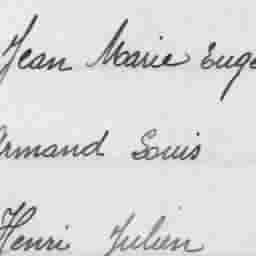 Jean Marie Euge
Armand Louis
Henri Julien